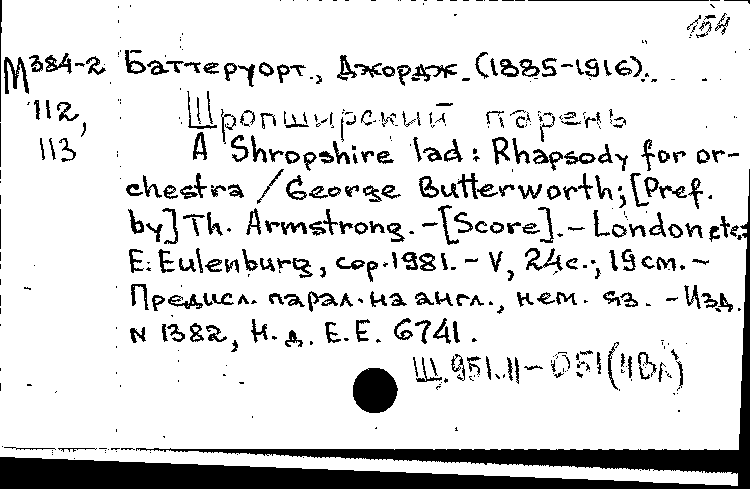 154
М384-2 Баттеруорт., Джордж. (1885-1916).
112, Шропширский парень
113 A Shropshire lad : Rhapsody for or-
chestra / George Butterworth; [Pref.
by] Th. Armstrong. - [Score]. - London etc.:
E. Eulenburg, cop. 1981. - V, 24 с.; 19 см. -
Предисл. парал. на англ., нем. яз. - Изд.
N 1382, Н. д. E. E. 6741.
Щ.951.11-051(4Вл)